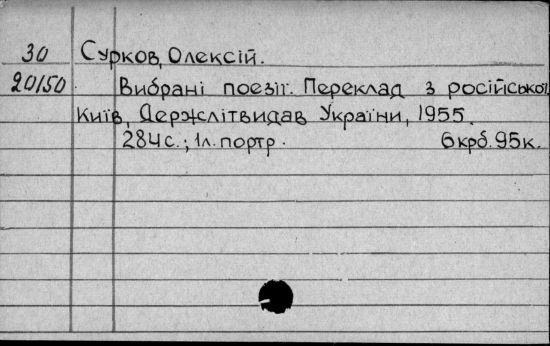 30 Сурков, Олексій.
20150 Вибрані поезії. Переклад з російської
Київ, Держлітвидав України, 1955.
284с.; 1л. портр. 6крб. 95к.